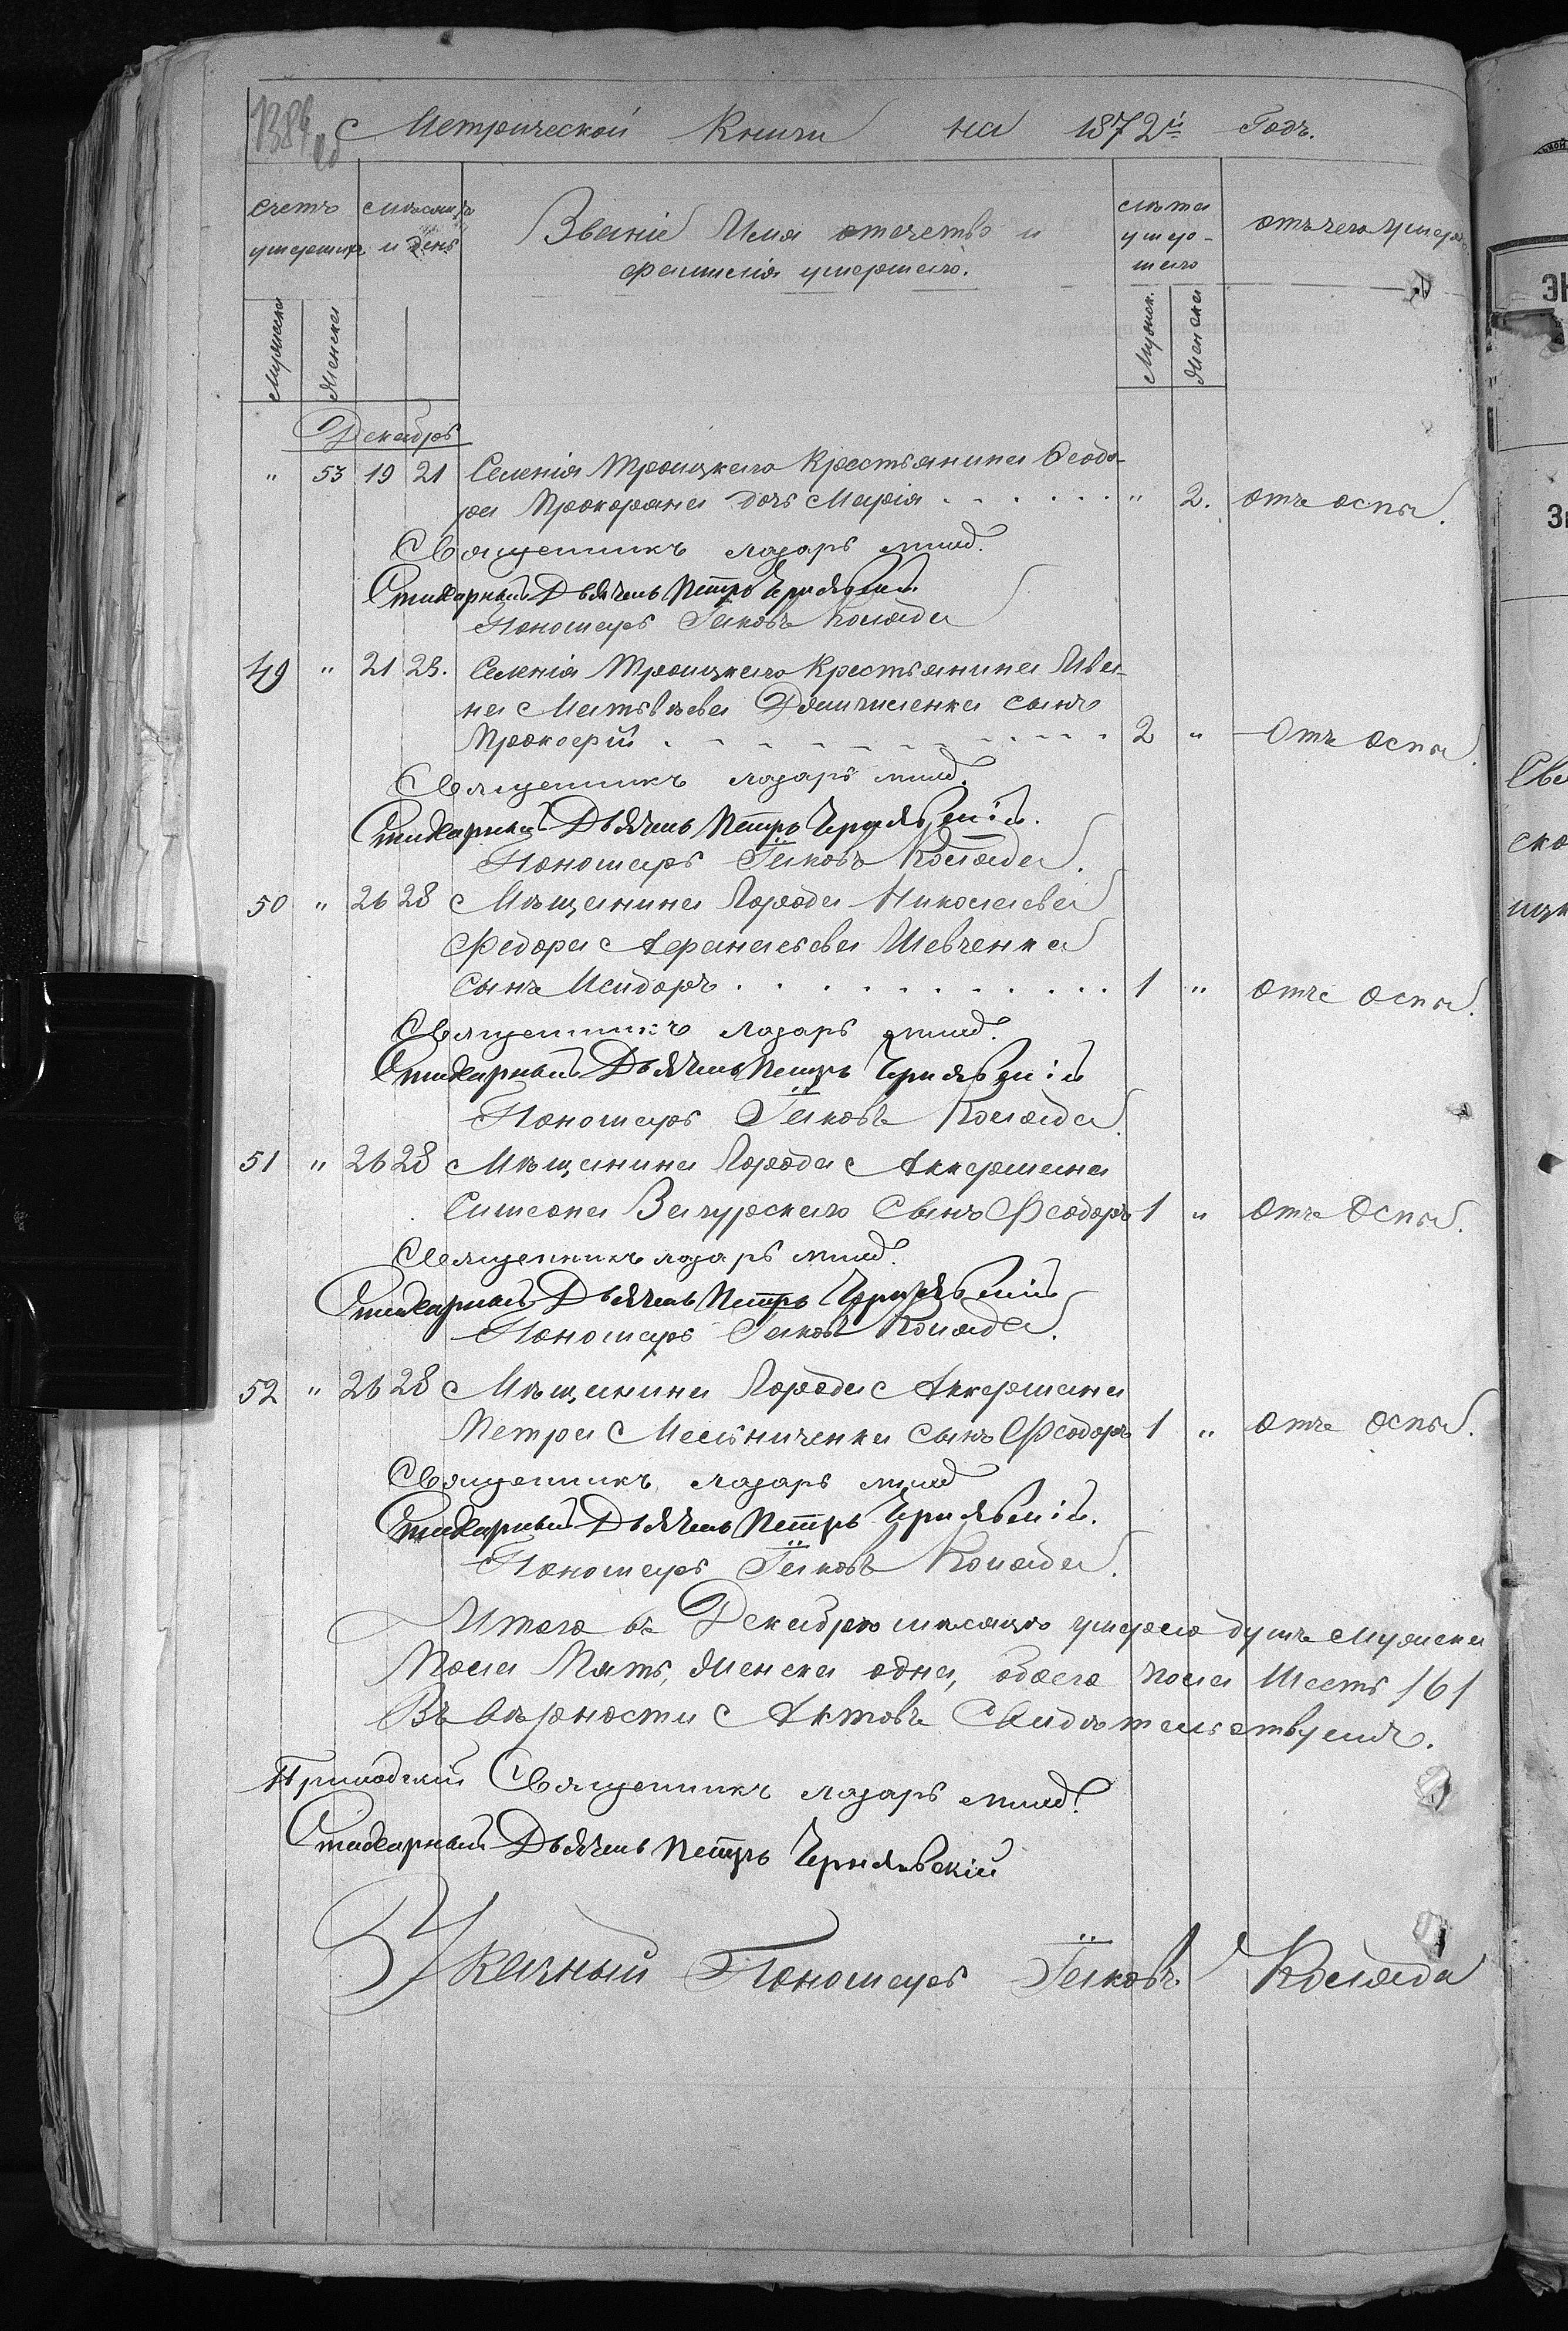 1384
Метрической Книги на 1872й Годъ.
счетъ умершихъ
мѣсяцъ и день
Званіе Имя отечество и
фамилія умершаго.
лѣта умершаго
отъ чего умеръ
Мужеска
Женска
Мужск.
Женска
Декабрь
" 53 19 21 Селенія Троицкаго Крестьянина Ѳеодо-
ра Прокофана дочь Марія . . . . . . " 2. отъ оспы.
Священникъ Лазарь
Стихарный Дьячекъ Петръ Чернявскій
Пономарь Іаковъ Коляда
49 " 21 23. Селенія Троицкаго Крестьянина Ива-
на Матвѣева сынъ
Прокофій . - - - - - - - - 2 " Отъ оспы.
Священникъ Лазарь
Стихарный Дьячекъ Петръ Чернявскій.
Пономарь Іаковъ Коляда.
50 " 26 28 Мѣщанина Города Николаева
Федора Афанасьева Шевченка
Сынъ Исидоръ . . . . . . . . . . 1 " отъ оспы.
Священникъ Лазарь
Стихарный Дьячекъ Петръ Чернявскій
Пономарь Іаковъ Коляда.
51 " 26 28 Мѣщанина Города Аккермана
Симеона Сынъ Феодоръ 1 " Отъ Оспы.
Священникъ Лазарь
Стихарный Дьячекъ Петръ Чернявскій
Пономарь Іаковъ Коляда.
52 " 26 28 Мѣщанина Города Аккермана
Петра Мельниченка сынъ Феодоръ 1 " отъ оспы.
Священникъ Лазарь
Стихарный Дьячекъ Петръ Чернявскій.
Пономарь Іаковъ Коляда.
Итого въ Декабрѣ мѣсяцѣ умерло душъ мужска
Пола Пять, Женска одна, обоего пола Шесть /6/
Въ вѣрности Актовъ Свидѣтельствуемъ.
Приходскій Священникъ Лазарь
Стихарный Дьячекъ Петръ Чернявскій
Указный Пономарь Іаковъ Коляда